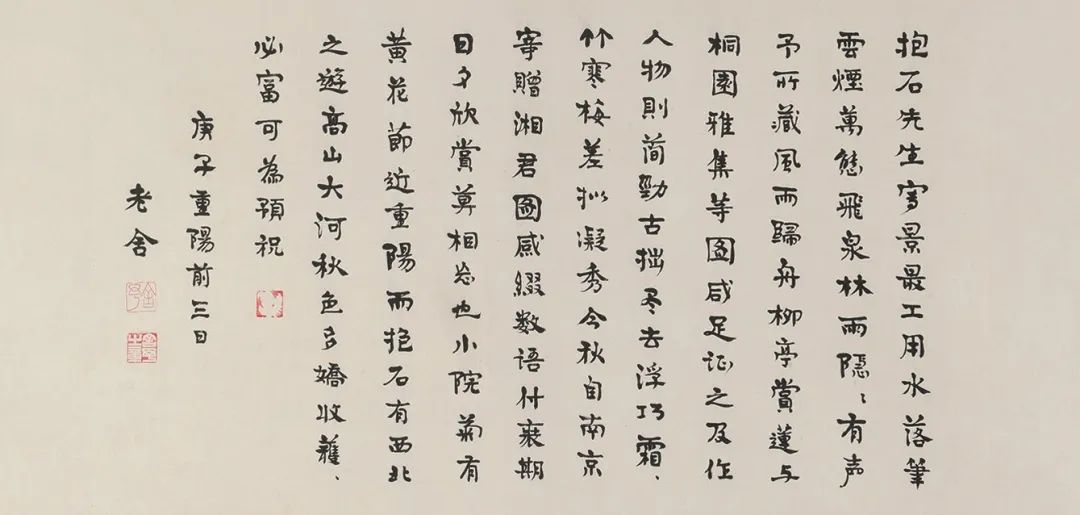 抱石先生寫景最工用水落筆
雲煙萬態飛泉林雨隱、有声
予所藏風雨歸舟柳亭賞蓮与
桐園雅集等圖咸足证之及作
人物則简勁古拙尽去浮巧霜、
竹寒梅差拟凝秀今秋自南京
寄贈湘君圖感綴数语什襲期
日夕欣賞莫相忘也小院菊有
黃花節近重陽而抱石有西北
之遊高山大河秋色多嬌收穫、
必富可為預祝
庚子重陽前三日
老舍
舍予